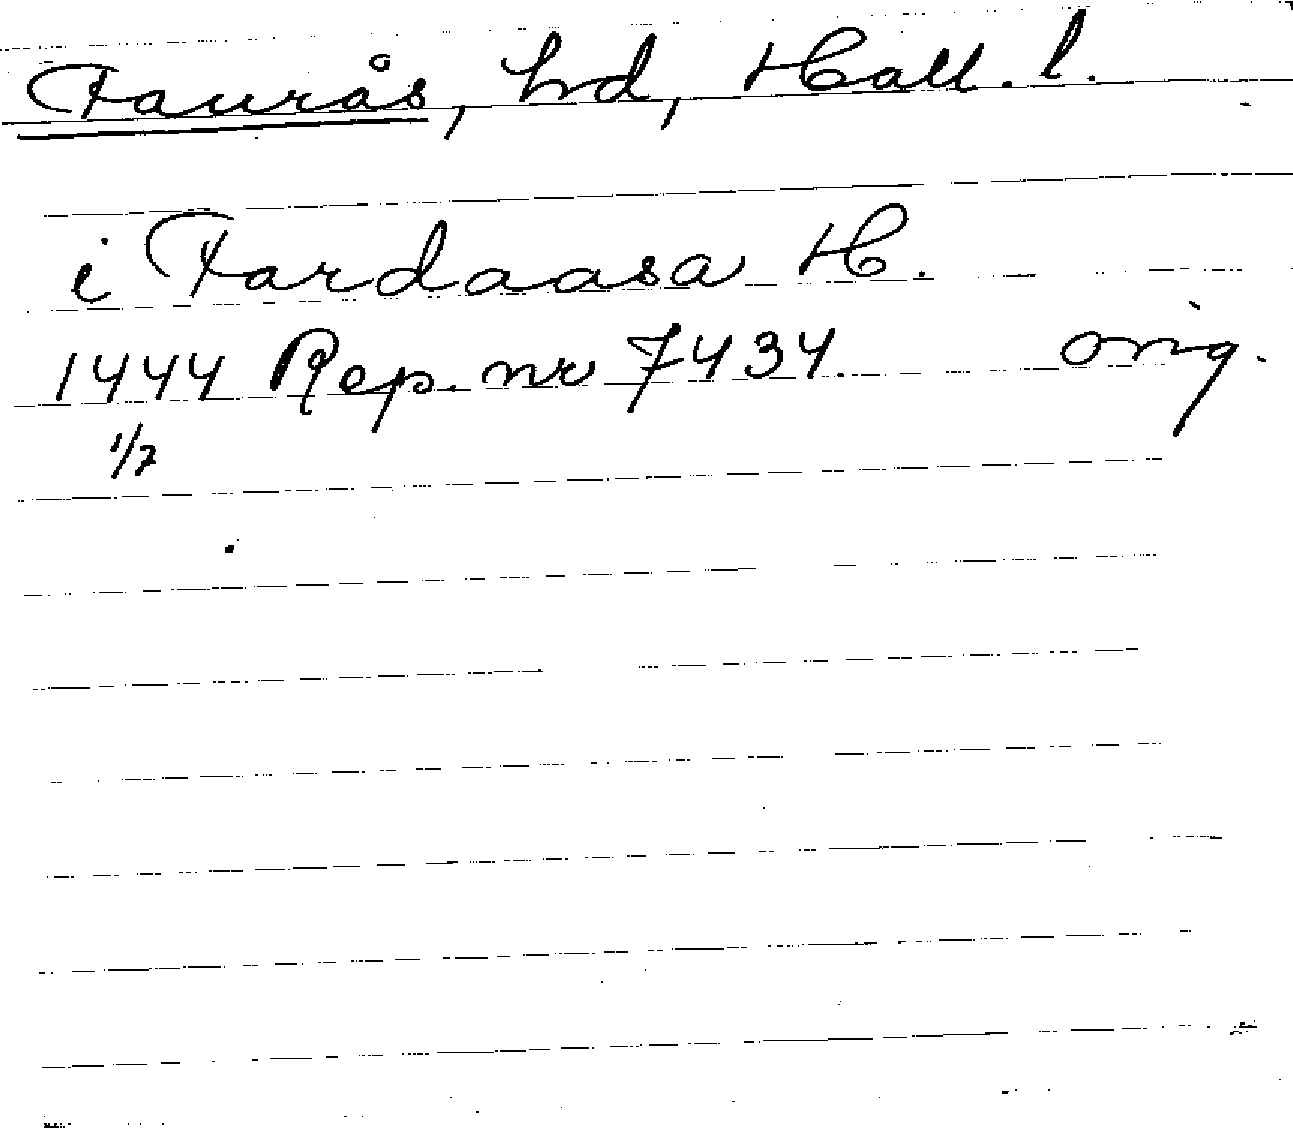 Faurås, hd, Hall. l.
i Fardaasa H.
1444 Rep. nr 7434. orig.
1/7